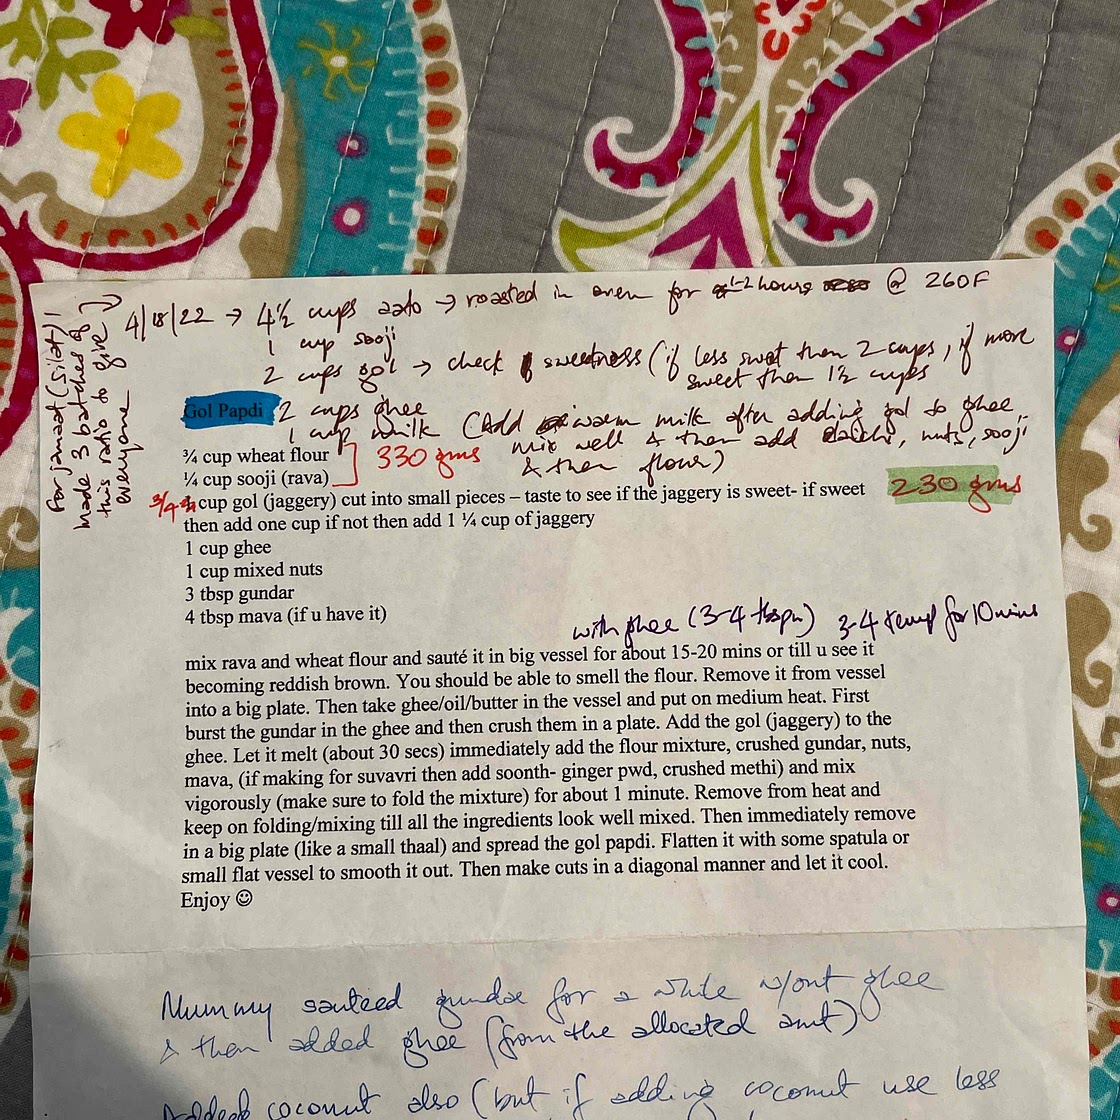 4/18/22 → 4½ cups aato → roasted in oven for 1-2 hours @ 260F
1 cup sooji
2 cups gol → check sweetness (if less sweet then 2 cups, if more
sweet then 1½ cups
2 cups ghee
1 cup milk (Add warm milk after adding gol to ghee,
mix well & then add elaichi, nuts, sooji
& then flour)
For jamaat (Silat)!
made 3 batches of
this ratio to give
everyone
Gol Papdi
¾ cup wheat flour
¼ cup sooji (rava)
330 gms
3/4 cup gol (jaggery) cut into small pieces – taste to see if the jaggery is sweet- if sweet
230 gms
then add one cup if not then add 1 ¼ cup of jaggery
1 cup ghee
1 cup mixed nuts
3 tbsp gundar
4 tbsp mava (if u have it)
with ghee (3-4 tbspn) 3-4 temp for 10 mins
mix rava and wheat flour and sauté it in big vessel for about 15-20 mins or till u see it
becoming reddish brown. You should be able to smell the flour. Remove it from vessel
into a big plate. Then take ghee/oil/butter in the vessel and put on medium heat. First
burst the gundar in the ghee and then crush them in a plate. Add the gol (jaggery) to the
ghee. Let it melt (about 30 secs) immediately add the flour mixture, crushed gundar, nuts,
mava, (if making for suvavri then add soonth- ginger pwd, crushed methi) and mix
vigorously (make sure to fold the mixture) for about 1 minute. Remove from heat and
keep on folding/mixing till all the ingredients look well mixed. Then immediately remove
in a big plate (like a small thaal) and spread the gol papdi. Flatten it with some spatula or
small flat vessel to smooth it out. Then make cuts in a diagonal manner and let it cool.
Enjoy ☺
Mummy sauteed gundar for a while w/out ghee
& then added ghee (from the allocated amt)
Added coconut also (but if adding coconut use less